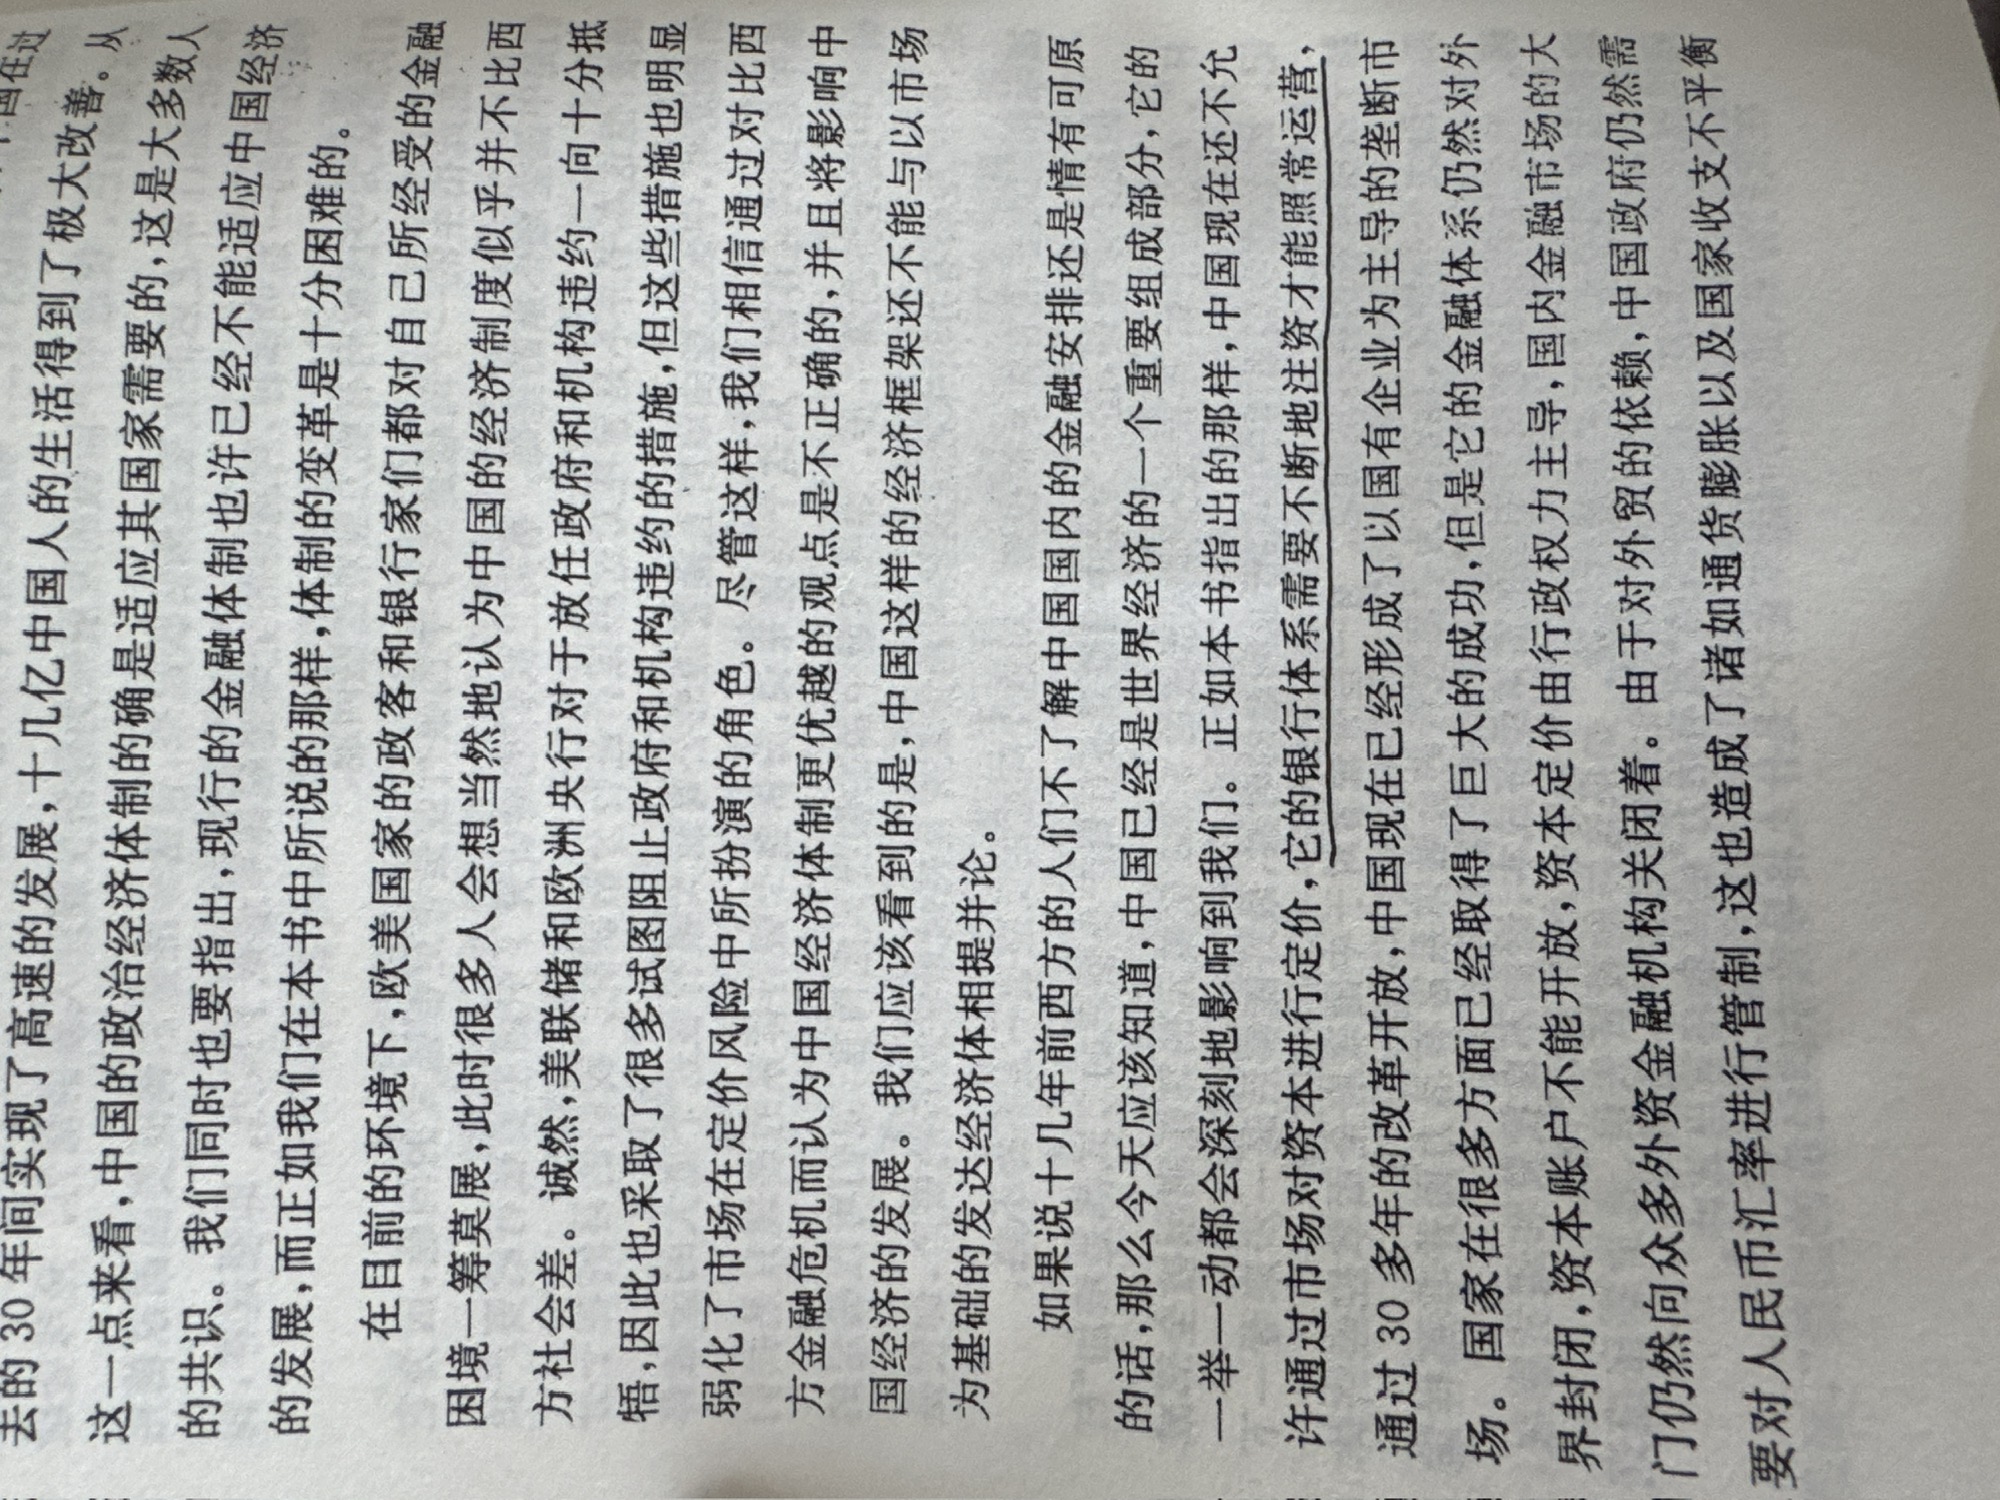 国在过
去的 30 年间实现了高速的发展，十几亿中国人的生活得到了极大改善。从
这一点来看，中国的政治经济体制的确是适应其国家需要的，这是大多数人
的共识。我们同时也要指出，现行的金融体制也许已经不能适应中国经济
的发展，而正如我们在本书中所说的那样，体制的变革是十分困难的。
在目前的环境下，欧美国家的政客和银行家们都对自己所经受的金融
困境一筹莫展，此时很多人会想当然地认为中国的经济制度似乎并不比西
方社会差。诚然，美联储和欧洲央行对于放任政府和机构违约一向十分抵
牾，因此也采取了很多试图阻止政府和机构违约的措施，但这些措施也明显
弱化了市场在定价风险中所扮演的角色。尽管这样，我们相信通过对比西
方金融危机而认为中国经济体制更优越的观点是不正确的，并且将影响中
国经济的发展。我们应该看到的是，中国这样的经济框架还不能与以市场
为基础的发达经济体相提并论。
如果说十几年前西方的人们不了解中国国内的金融安排还是情有可原
的话，那么今天应该知道，中国已经是世界经济的一个重要组成部分，它的
一举一动都会深刻地影响到我们。正如本书指出的那样，中国现在还不允
许通过市场对资本进行定价，它的银行体系需要不断地注资才能照常运营，
通过 30 多年的改革开放，中国现在已经形成了以国有企业为主导的垄断市
场。国家在很多方面已经取得了巨大的成功，但是它的金融体系仍然对外
界封闭，资本账户不能开放，资本定价由行政权力主导，国内金融市场的大
门仍然向众多外资金融机构关闭着。由于对外贸的依赖，中国政府仍然需
要对人民币汇率进行管制，这也造成了诸如通货膨胀以及国家收支不平衡